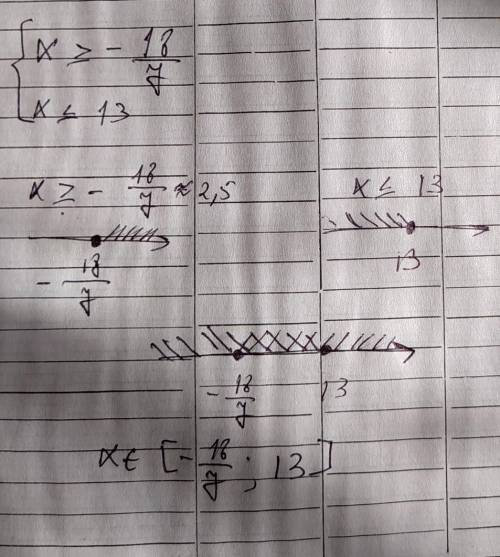 { x ≥ - 18/7
x ≤ 13
x ≥ - 18/7 ≈ 2,5
x ≤ 13
- 18/7
13
- 18/7 13
x ∈ [- 18/7 ; 13]